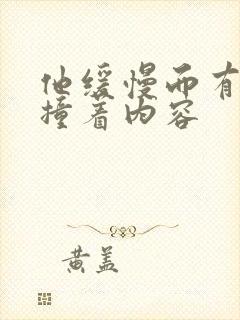 他缓慢而有
撞着内容
黄盖